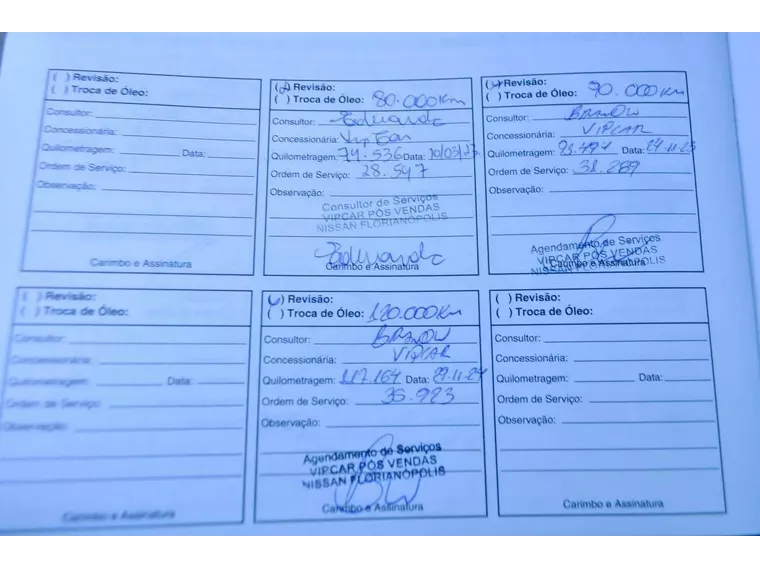 ( ) Revisão:
( ) Troca de Óleo:
Consultor:
Concessionária:
Quilometragem: Data:
Ordem de Serviço:
Observação:
Carimbo e Assinatura
( ) Revisão:
( ) Troca de Óleo: 80.000Km
Consultor: Eduardo
Concessionária: Vip Car
Quilometragem: 74.536 Data: 10/03/23
Ordem de Serviço: 28.547
Observação:
Consultor de Serviços
VIPCAR PÓS VENDAS
NISSAN FLORIANÓPOLIS
Eduardo
Carimbo e Assinatura
( ) Revisão:
( ) Troca de Óleo: 90.000Km
Consultor: BRANDW
Concessionária: VIPCAR
Quilometragem: Data: 24.11.23
Ordem de Serviço: 31.289
Observação:
Agendamento de Serviços
VIPCAR PÓS VENDAS
Carimbo e Assinatura
NISSAN FLORIANÓPOLIS
( ) Revisão:
( ) Troca de Óleo:
Consultor:
Concessionária:
Quilometragem: Data:
Ordem de Serviço:
Observação:
Carimbo e Assinatura
( ) Revisão:
( ) Troca de Óleo: 120.000Km
Consultor: BRANDW
Concessionária: VIPCAR
Quilometragem: 117.164 Data: 29.11.24
Ordem de Serviço: 35.923
Observação:
Agendamento de Serviços
VIPCAR PÓS VENDAS
NISSAN FLORIANÓPOLIS
Carimbo e Assinatura
( ) Revisão:
( ) Troca de Óleo:
Consultor:
Concessionária:
Quilometragem: Data:
Ordem de Serviço:
Observação:
Carimbo e Assinatura